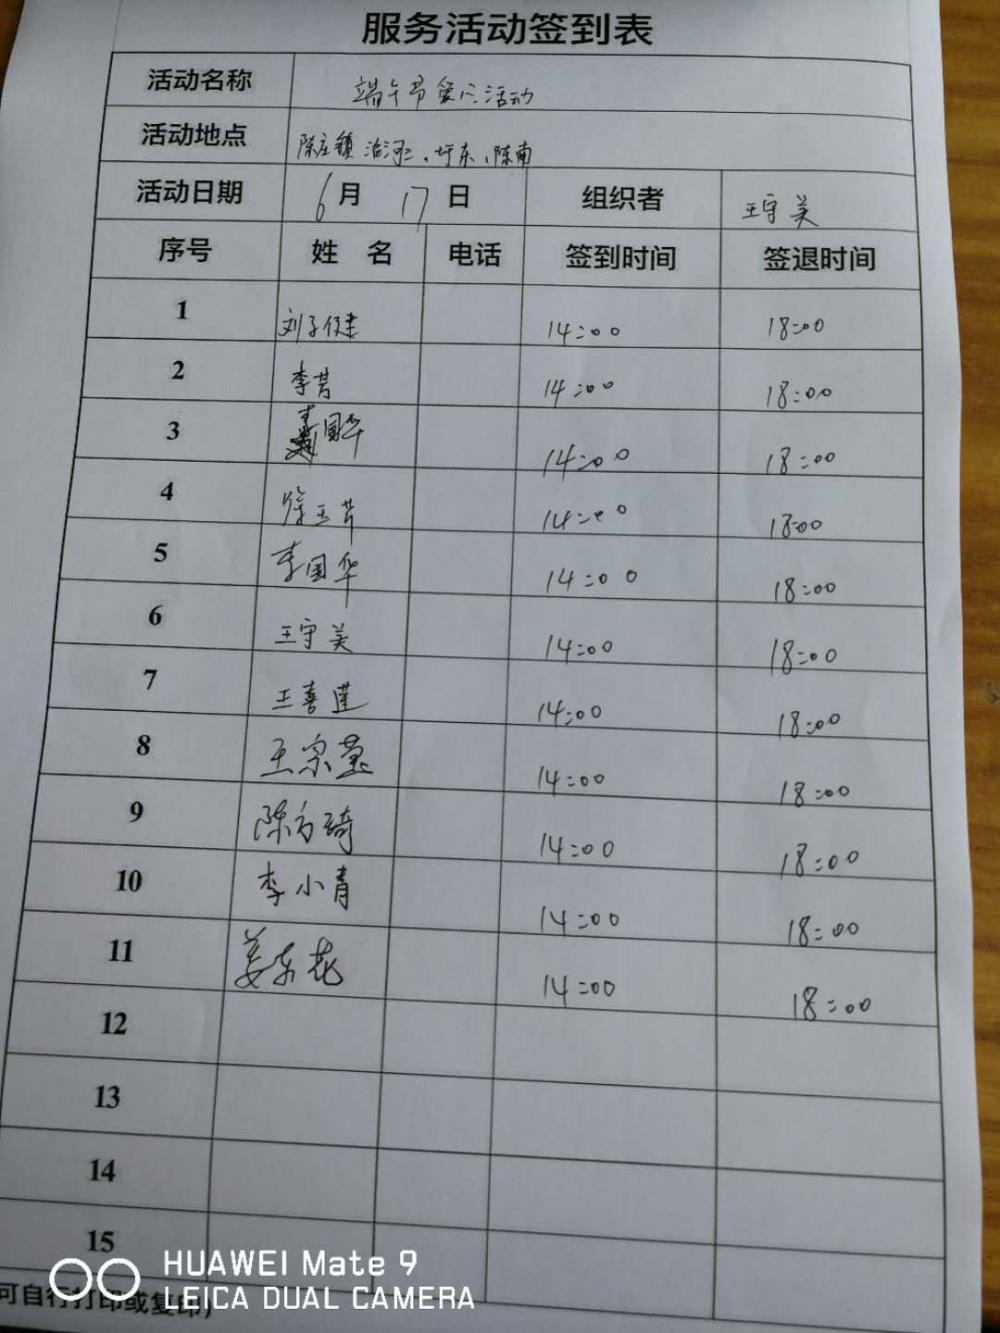 服务活动签到表
活动名称 端午节爱心活动
活动地点 陈庄镇 治河、圩东、陈南
活动日期 6月 17日 组织者 王守美
序号 姓 名 电话 签到时间 签退时间
1 刘子健 14:00 18:00
2 李芳 14:00 18:00
3 李国华 14:00 18:00
4 徐玉芳 14:00 18:00
5 李国华 14:00 18:00
6 王守美 14:00 18:00
7 王喜莲 14:00 18:00
8 王宗 14:00 18:00
9 陈方琦 14:00 18:00
10 李小青 14:00 18:00
11 姜东花 14:00 18:00
12
13
14
15
可自行打印或复印)
HUAWEI Mate 9
LEICA DUAL CAMERA